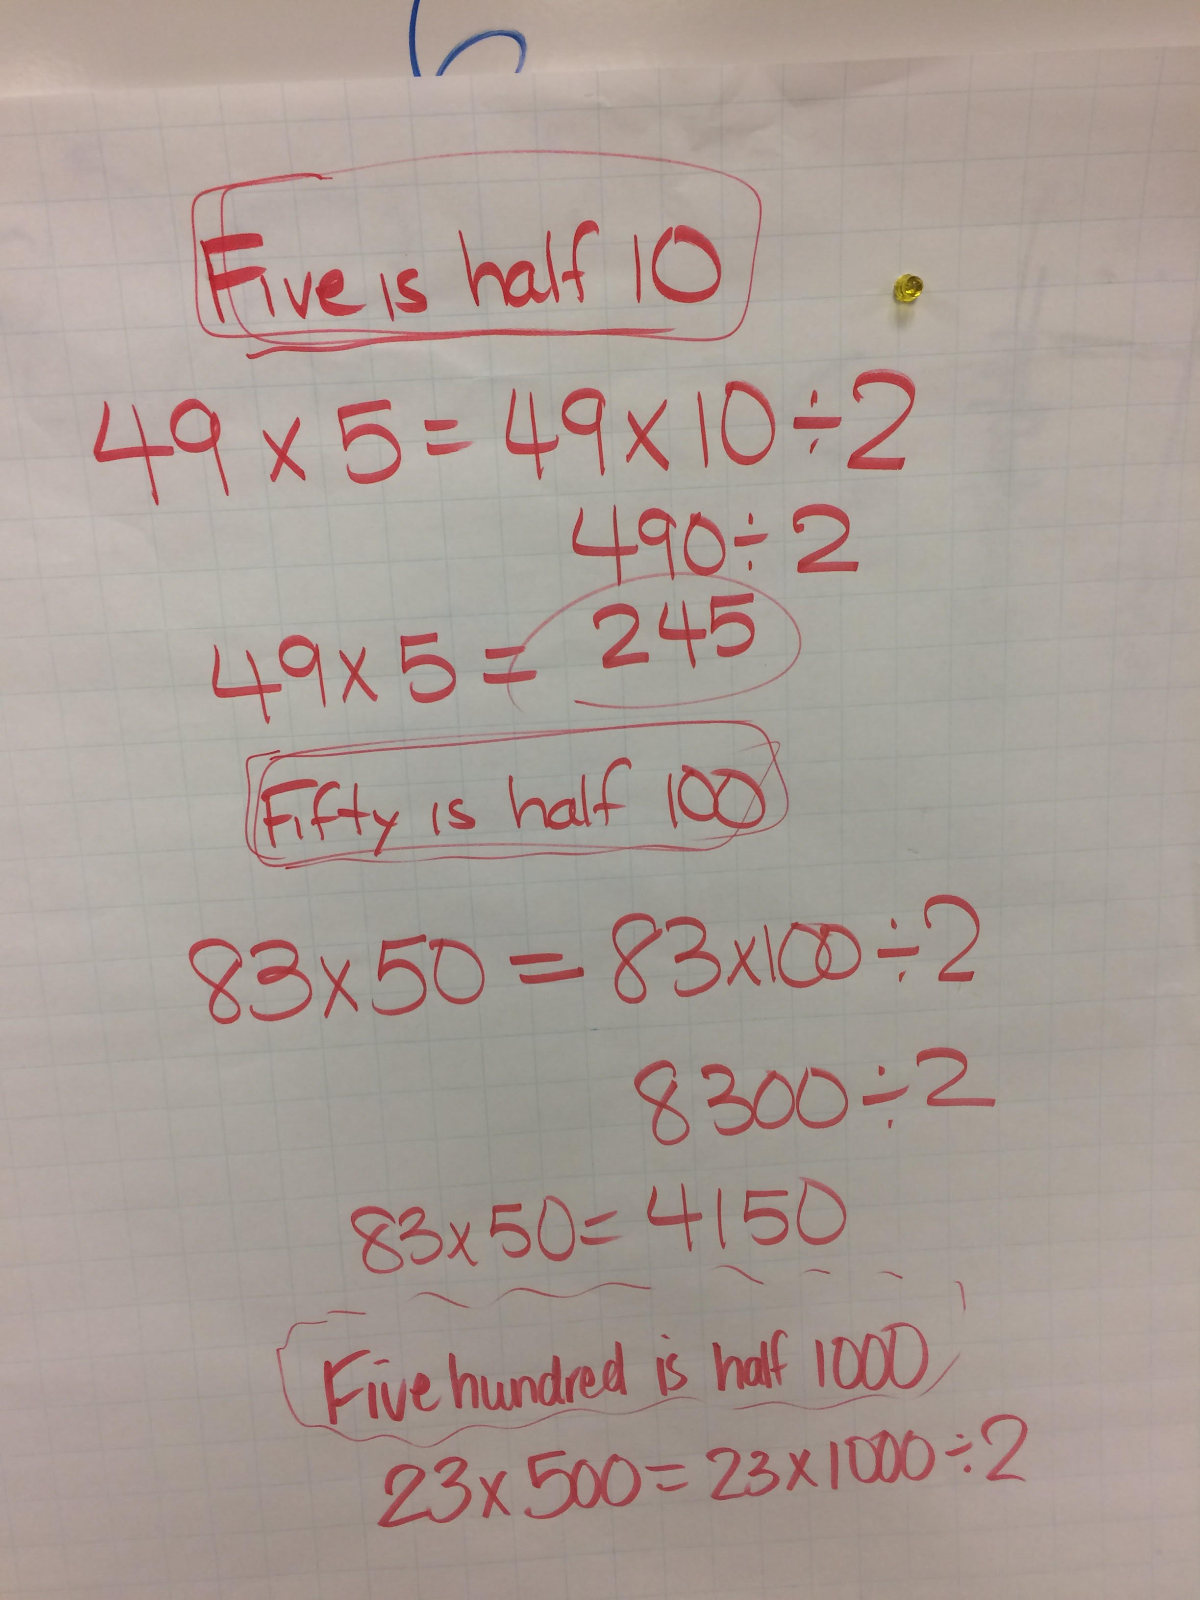 Five is half 10
49 x 5 = 49 x 10 ÷ 2
490 ÷ 2
49 x 5 = 245
Fifty is half 100
83 x 50 = 83 x 100 ÷ 2
8300 ÷ 2
83 x 50 = 4150
Five hundred is half 1000
23 x 500 = 23 x 1000 ÷ 2